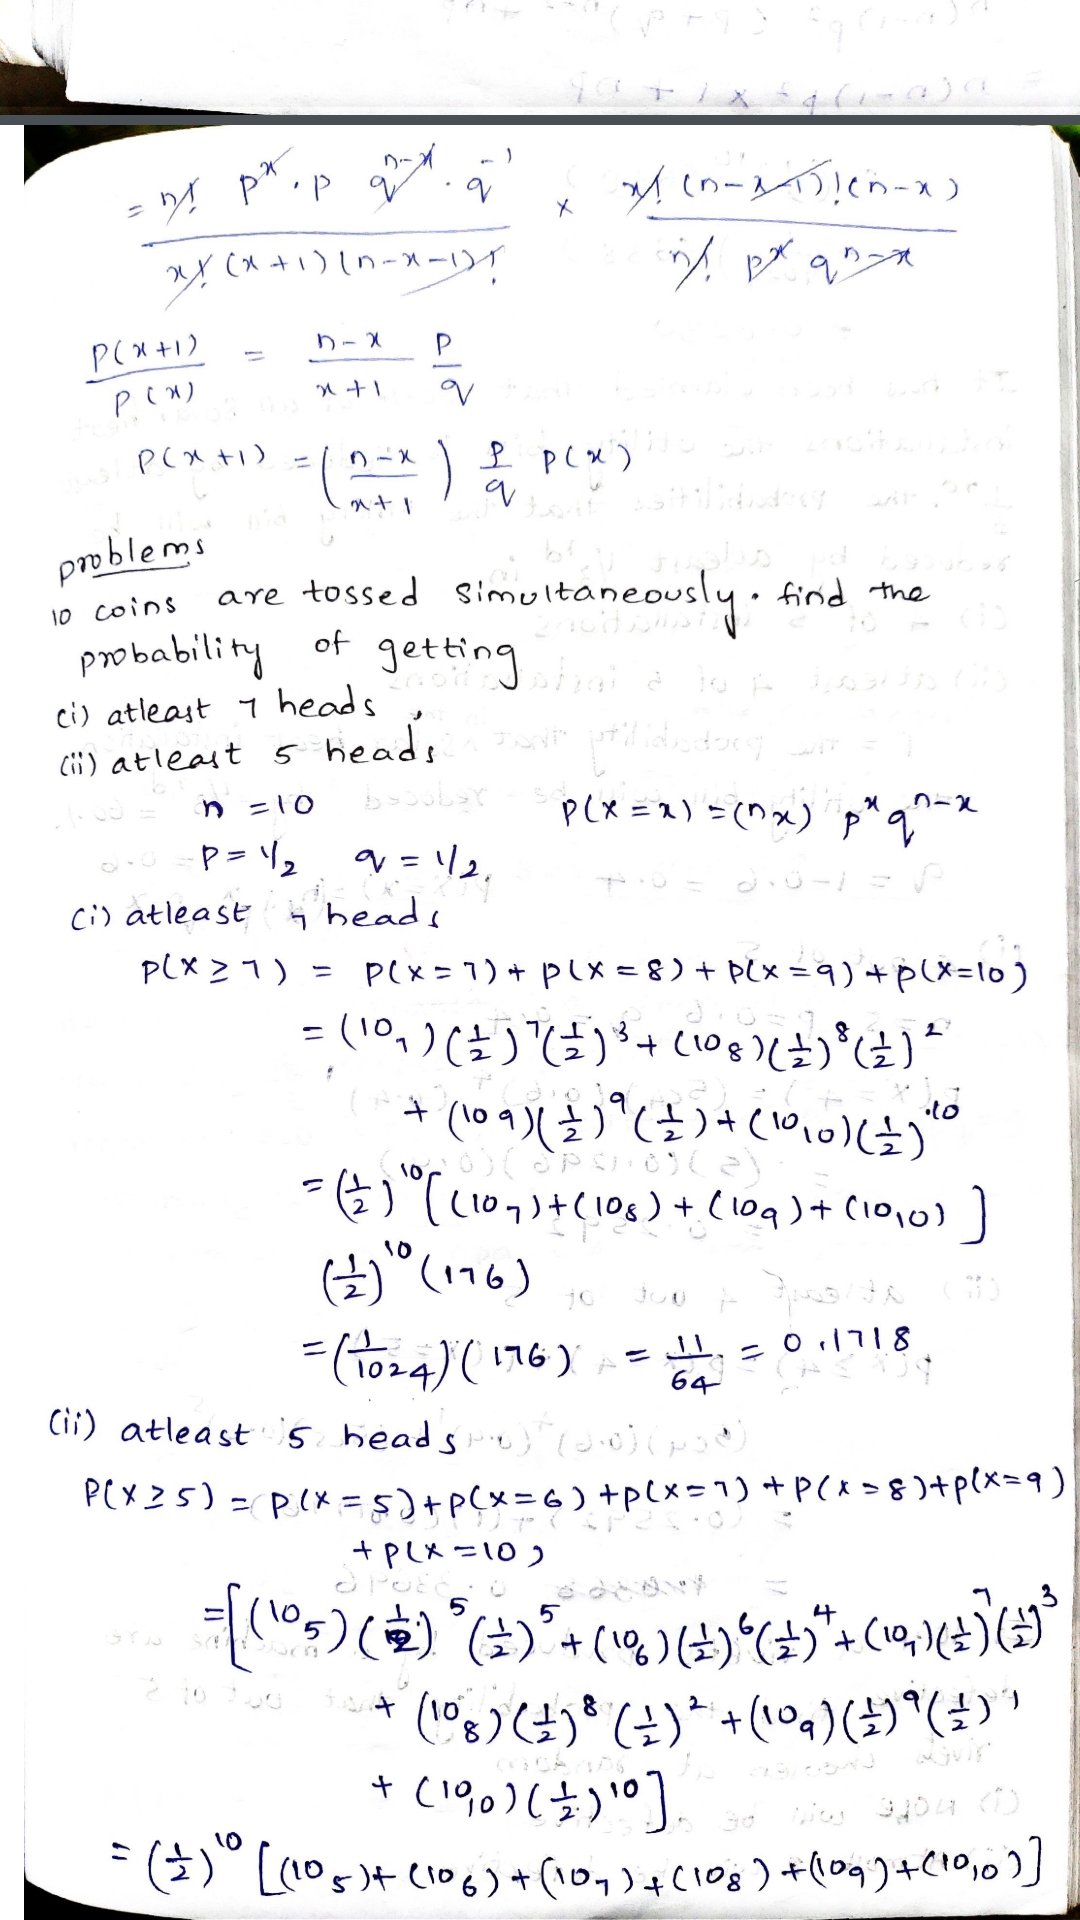 = n! pˣ . p qⁿ⁻ˣ . q⁻¹ / x! (x+1) (n-x-1)! × x! (n-x-1)! (n-x) / n! pˣ qⁿ⁻ˣ
P(x+1) / P(x) = n-x / x+1 p/q
P(x+1) = (n-x / x+1) p/q P(x)
problems
10 coins are tossed simultaneously. find the
probability of getting
(i) atleast 7 heads,
(ii) atleast 5 heads
n = 10 P(X = x) = (nx) pˣ qⁿ⁻ˣ
P = 1/2 q = 1/2,
(i) atleast 7 heads
P(X ≥ 7) = P(X = 7) + P(X = 8) + P(X = 9) + P(X=10)
= (10₇) (1/2)⁷ (1/2)³ + (10₈) (1/2)⁸ (1/2)²
+ (10₉) (1/2)⁹ (1/2) + (10₁₀) (1/2)¹⁰
= (1/2)¹⁰ [(10₇) + (10₈) + (10₉) + (10₁₀)]
(1/2)¹⁰ (176)
= (1/1024) (176) = 11/64 = 0.1718
(ii) atleast 5 heads
P(X ≥ 5) = P(X = 5) + P(X = 6) + P(X = 7) + P(X = 8) + P(X = 9)
+ P(X = 10)
= [(10₅) (1/2)⁵ (1/2)⁵ + (10₆) (1/2)⁶ (1/2)⁴ + (10₇) (1/2)⁷ (1/2)³
+ (10₈) (1/2)⁸ (1/2)² + (10₉) (1/2)⁹ (1/2)¹
+ (10₁₀) (1/2)¹⁰]
= (1/2)¹⁰ [(10₅) + (10₆) + (10₇) + (10₈) + (10₉) + (10₁₀)]